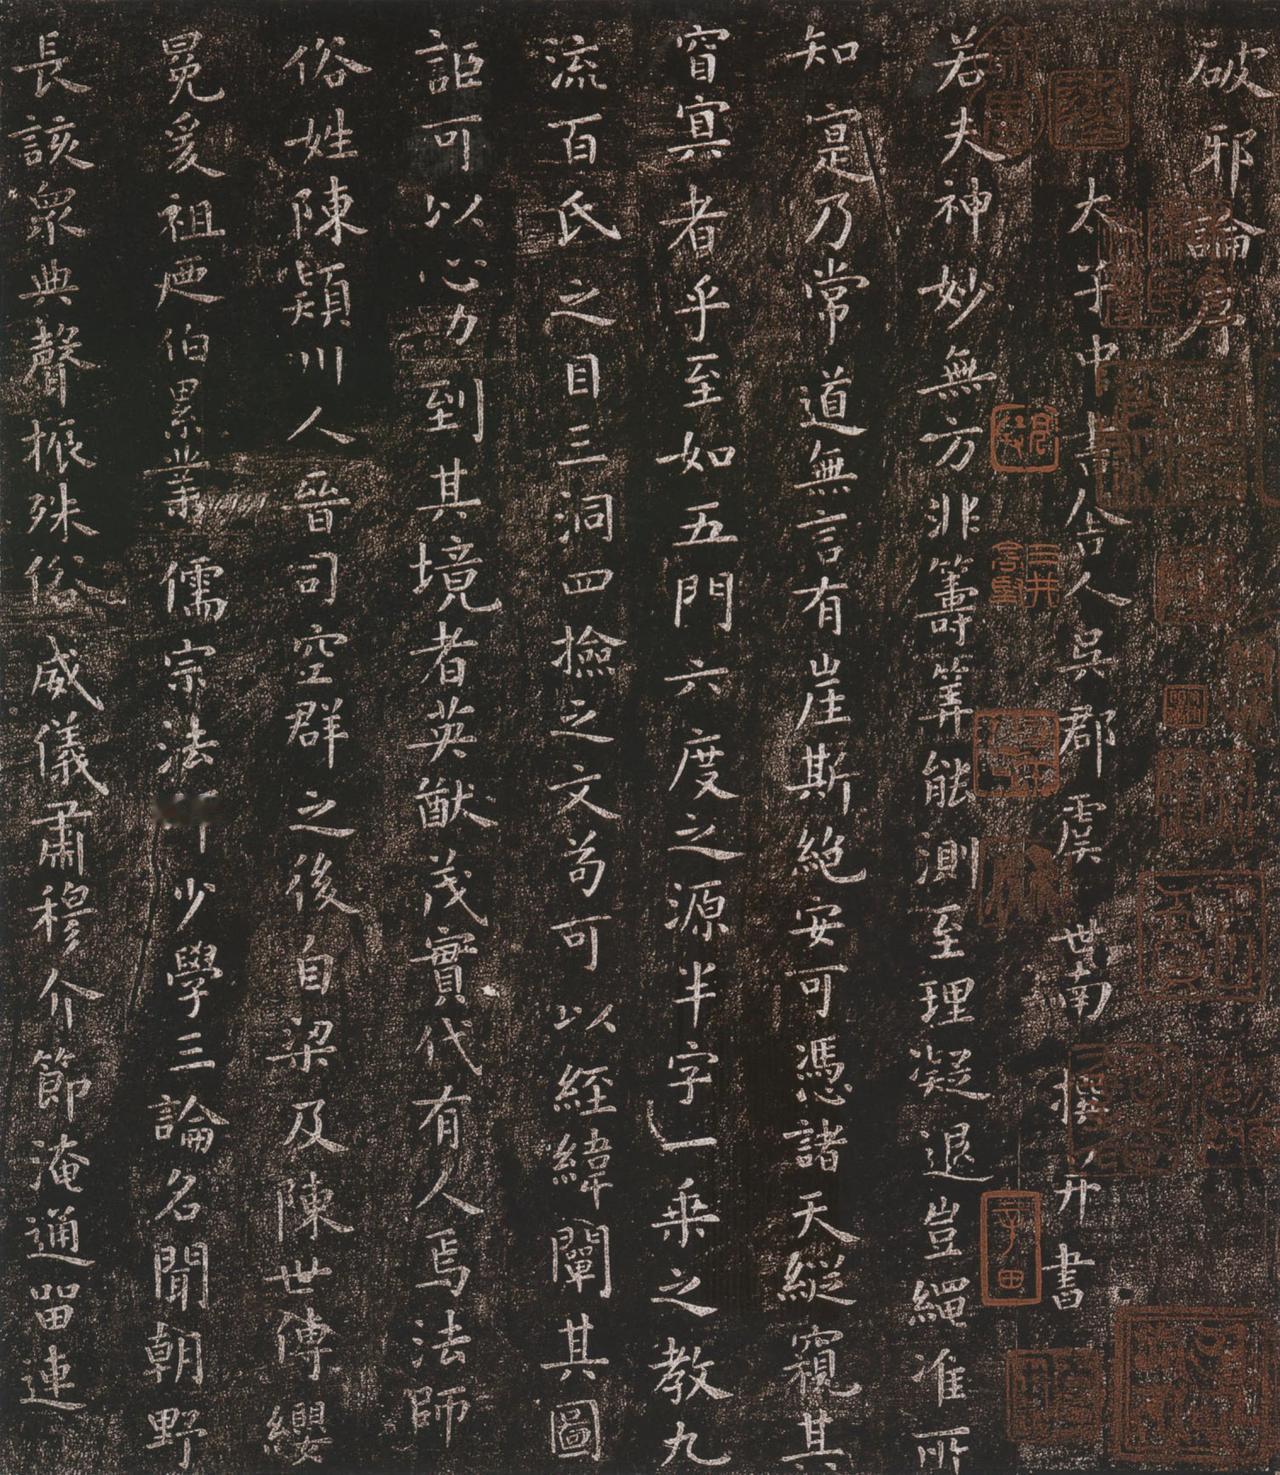 破邪論序
太子中書舍人吳郡虞世南撰并書
若夫神妙無方非籌筭能測至理凝退豈繩准所
知寔乃常道無言有崖斯絕安可憑諸天縱窺其
窅寘者乎至如五門六度之源半字一乘之教九
流百氏之目三洞四撿之文苟可以經緯闡其圖
詎可以心力到其境者英猷茂實代有人焉法師
俗姓陳潁川人晉司空群之後自梁及陳世傳纓
冕爰祖迺伯累業儒宗法師少學三論名聞朝野
長該眾典聲振殊俗威儀肅穆介節淹通留連
三井
子田